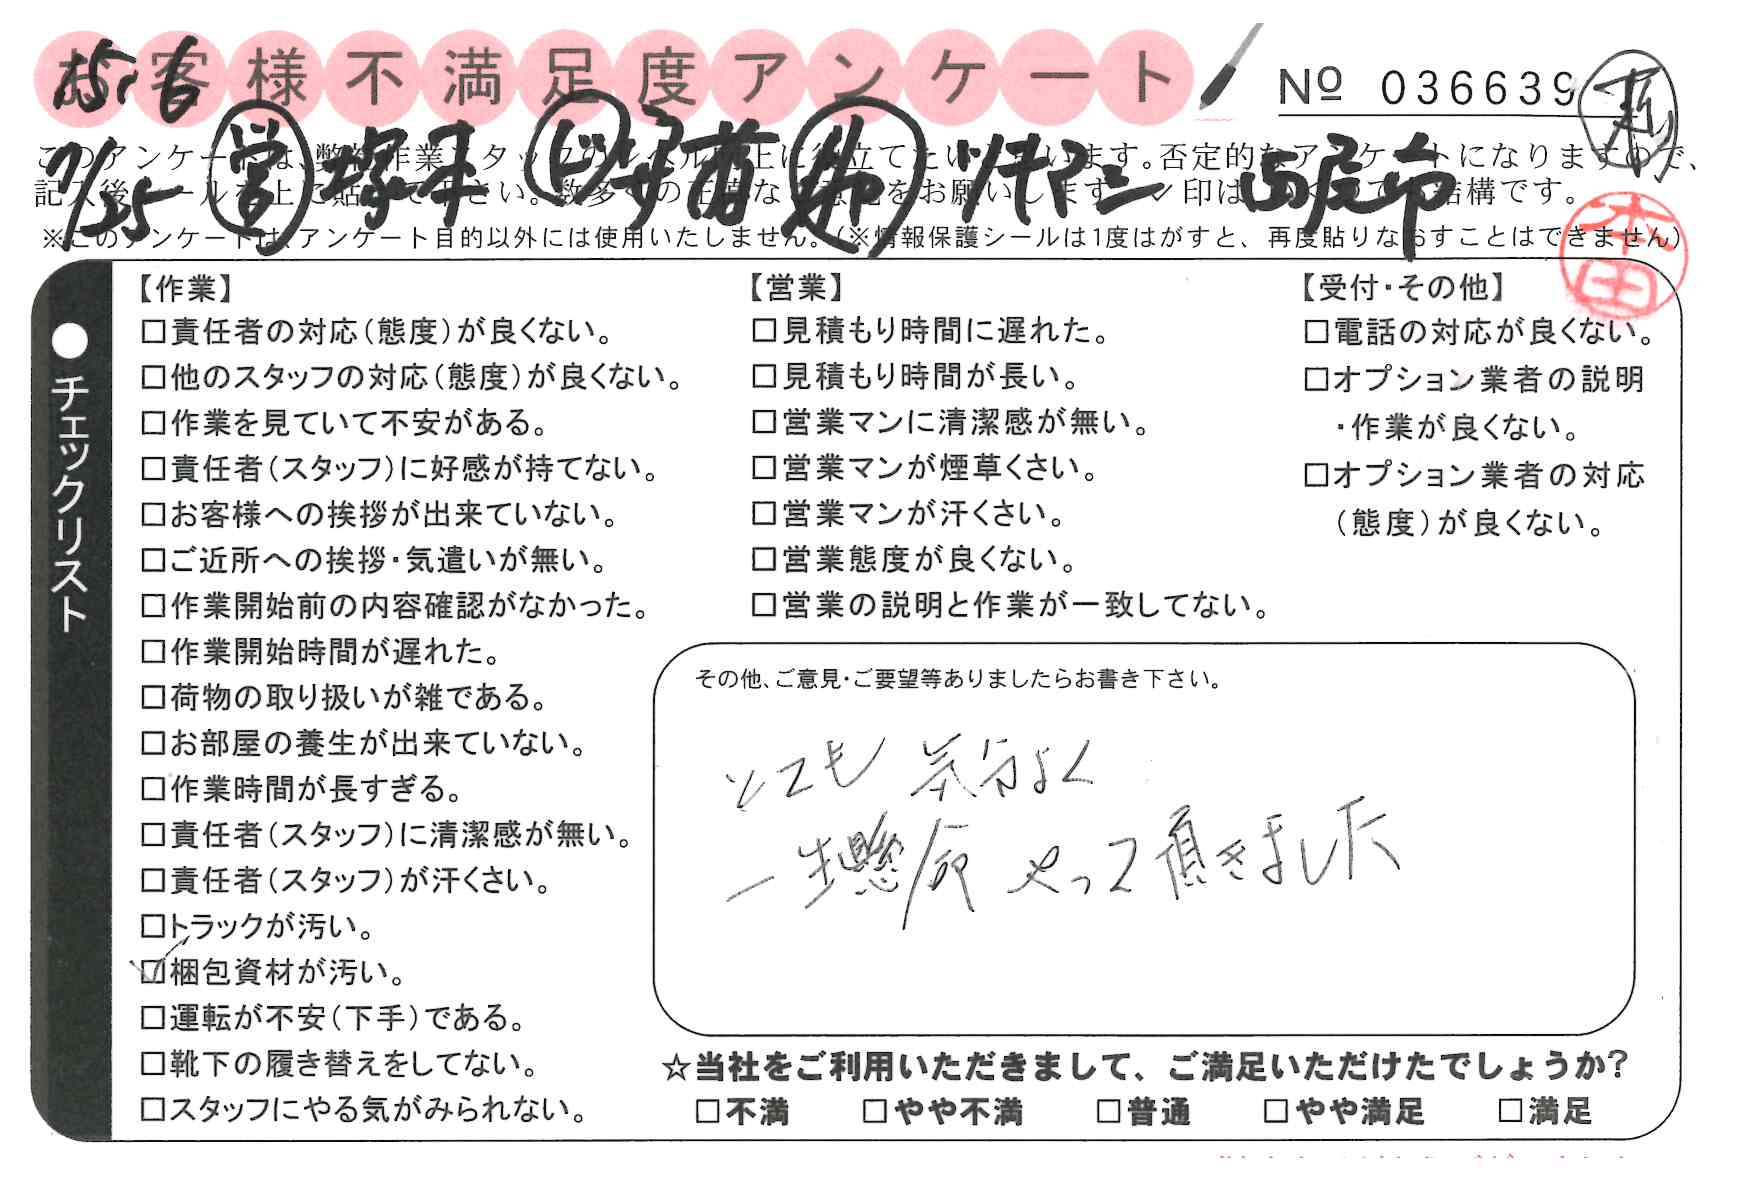 お客様不満足度アンケート
№ 036639
このアンケートは、弊社作業スタッフのレベル向上に役立てたいと思います。否定的なアンケートになりますので、
記入後シールを上に貼って下さい。数多くの正直なご意見をお願いします。✓印はいくつでも結構です。
※このアンケートは、アンケート目的以外には使用いたしません。(※情報保護シールは1度はがすと、再度貼りなおすことはできません)
7/25 営 塚本
西尾市
本田
●チェックリスト
【作業】
□責任者の対応(態度)が良くない。
□他のスタッフの対応(態度)が良くない。
□作業を見ていて不安がある。
□責任者(スタッフ)に好感が持てない。
□お客様への挨拶が出来ていない。
□ご近所への挨拶・気遣いが無い。
□作業開始前の内容確認がなかった。
□作業開始時間が遅れた。
□荷物の取り扱いが雑である。
□お部屋の養生が出来ていない。
□作業時間が長すぎる。
□責任者(スタッフ)に清潔感が無い。
□責任者(スタッフ)が汗くさい。
□トラックが汚い。
☑梱包資材が汚い。
□運転が不安(下手)である。
□靴下の履き替えをしてない。
□スタッフにやる気がみられない。
【営業】
□見積もり時間に遅れた。
□見積もり時間が長い。
□営業マンに清潔感が無い。
□営業マンが煙草くさい。
□営業マンが汗くさい。
□営業態度が良くない。
□営業の説明と作業が一致してない。
【受付・その他】
□電話の対応が良くない。
□オプション業者の説明
・作業が良くない。
□オプション業者の対応
(態度)が良くない。
その他、ご意見・ご要望等ありましたらお書き下さい。
とても 気分よく
一生懸命 やって頂きました
☆当社をご利用いただきまして、ご満足いただけたでしょうか?
□不満 □やや不満 □普通 □やや満足 □満足